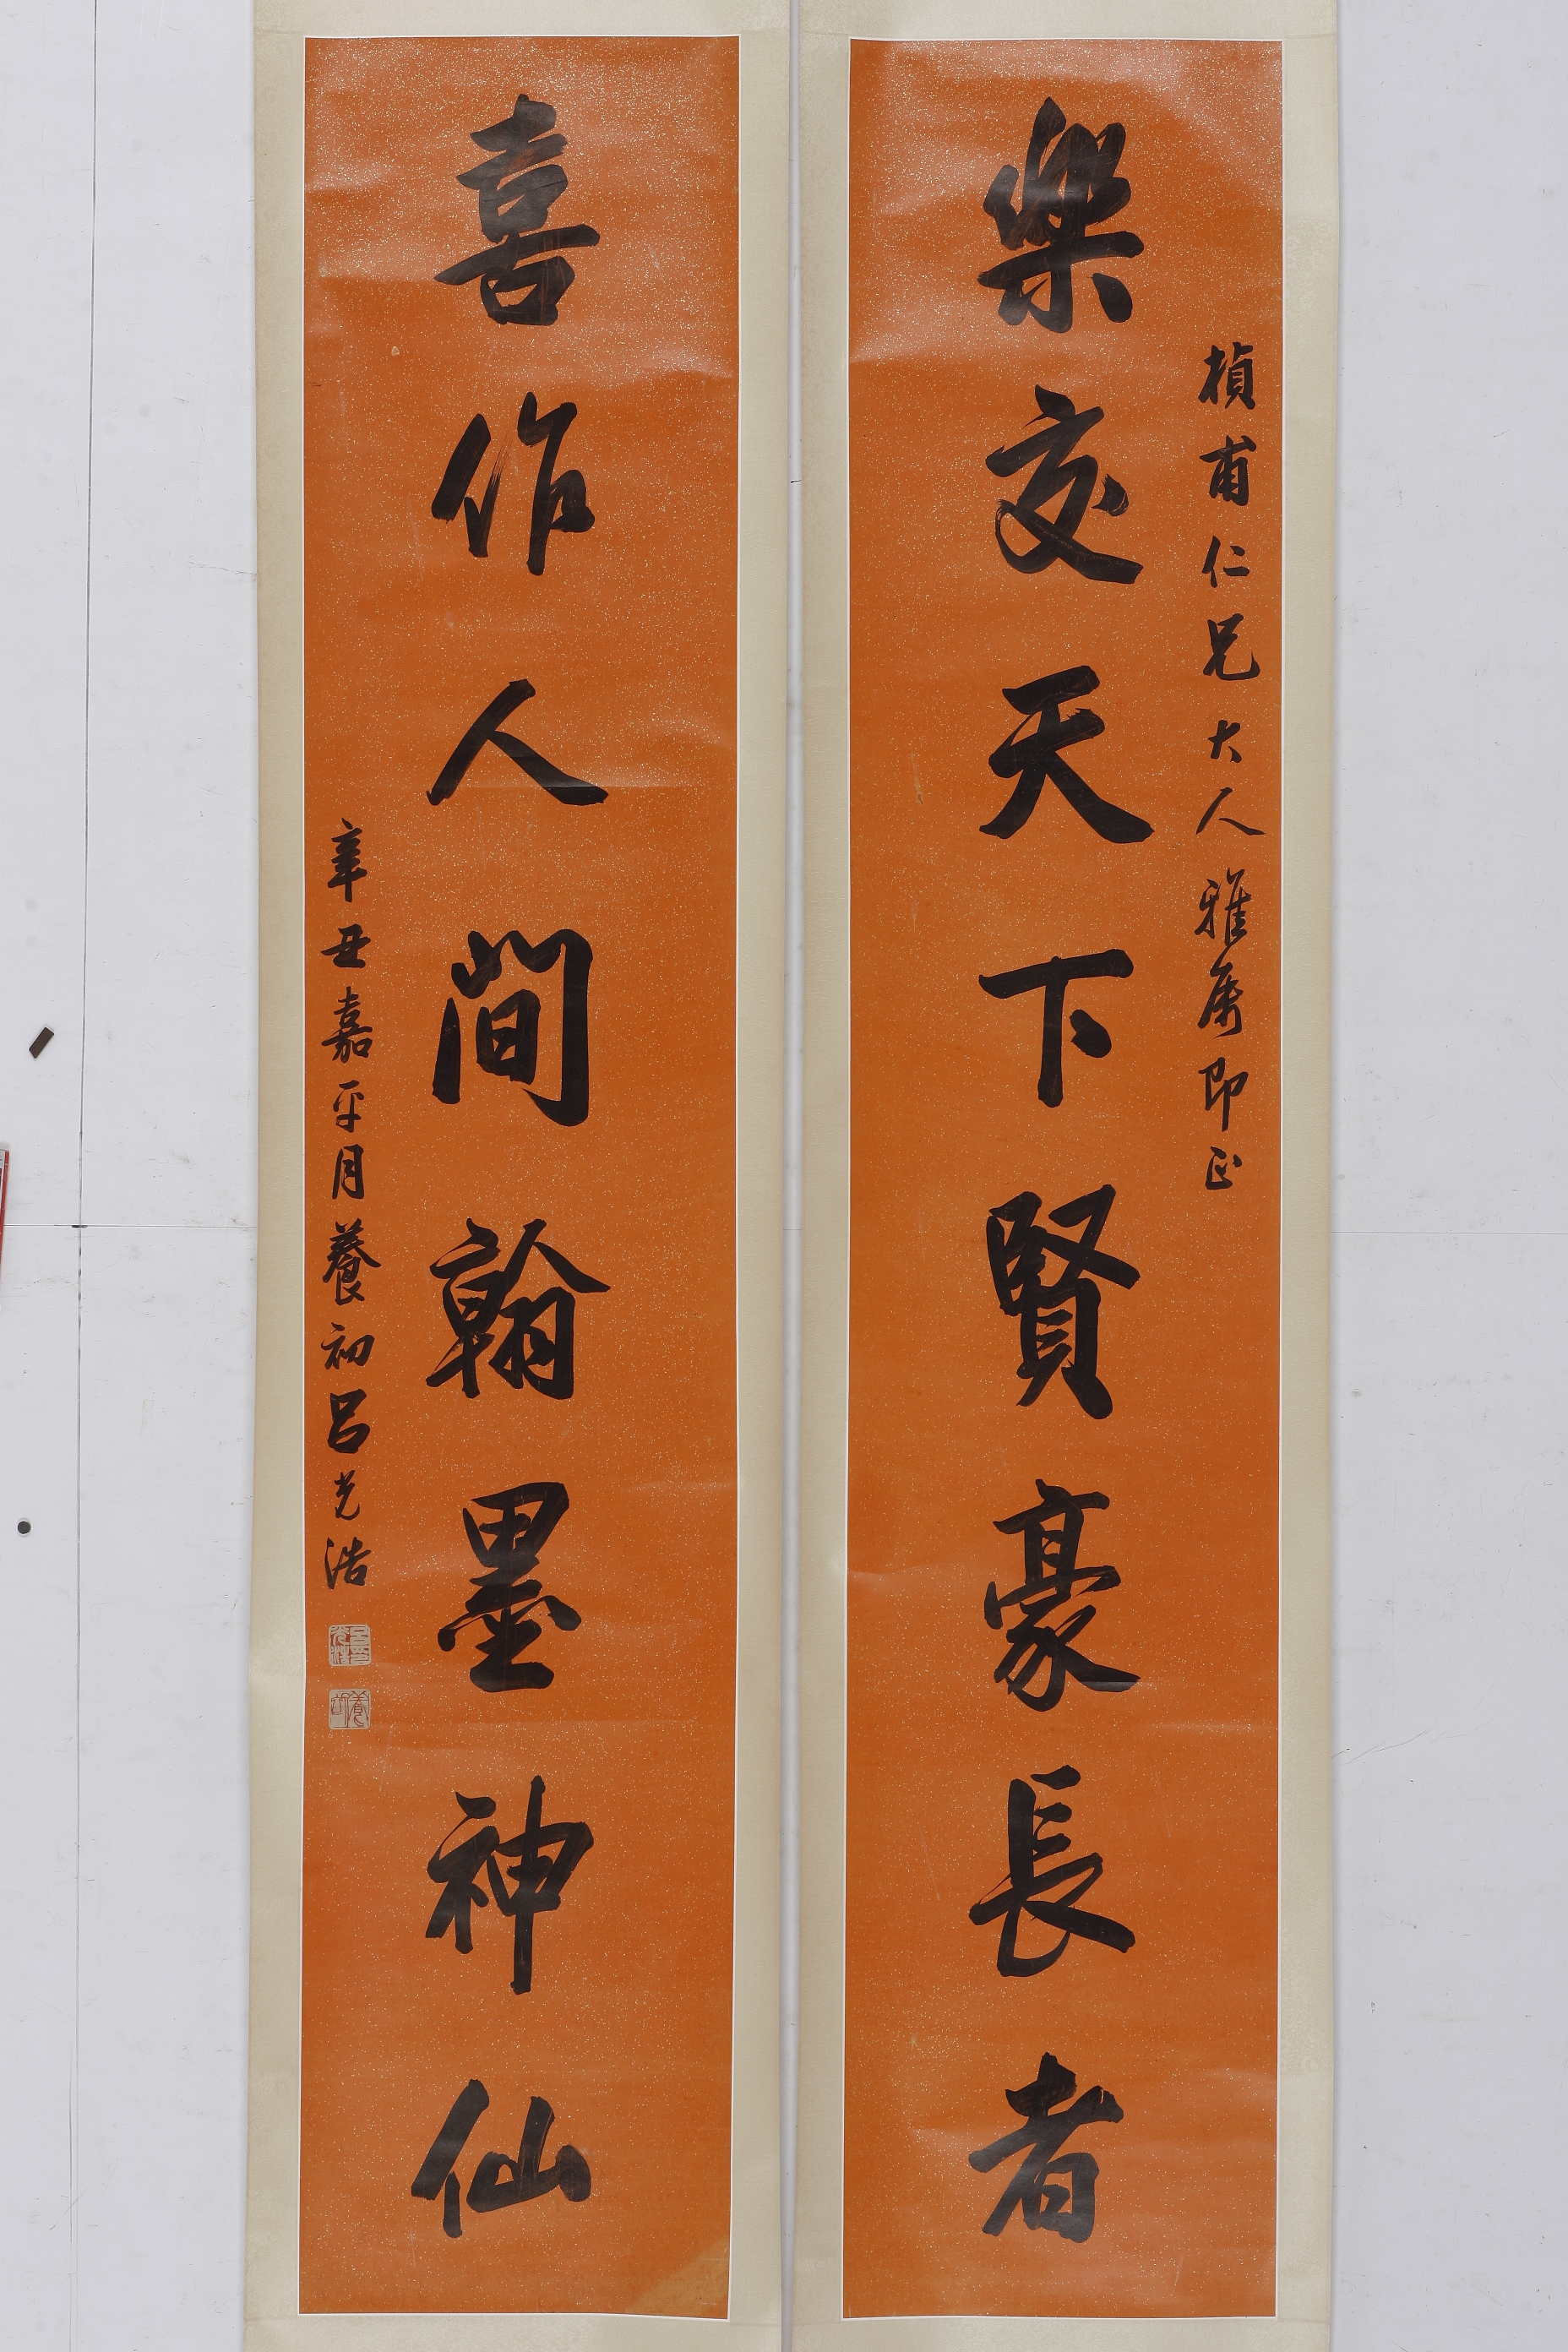 楨甫仁兄大人雅屬即正
樂交天下賢豪長者
喜作人間翰墨神仙
辛丑嘉平月養初呂光浩